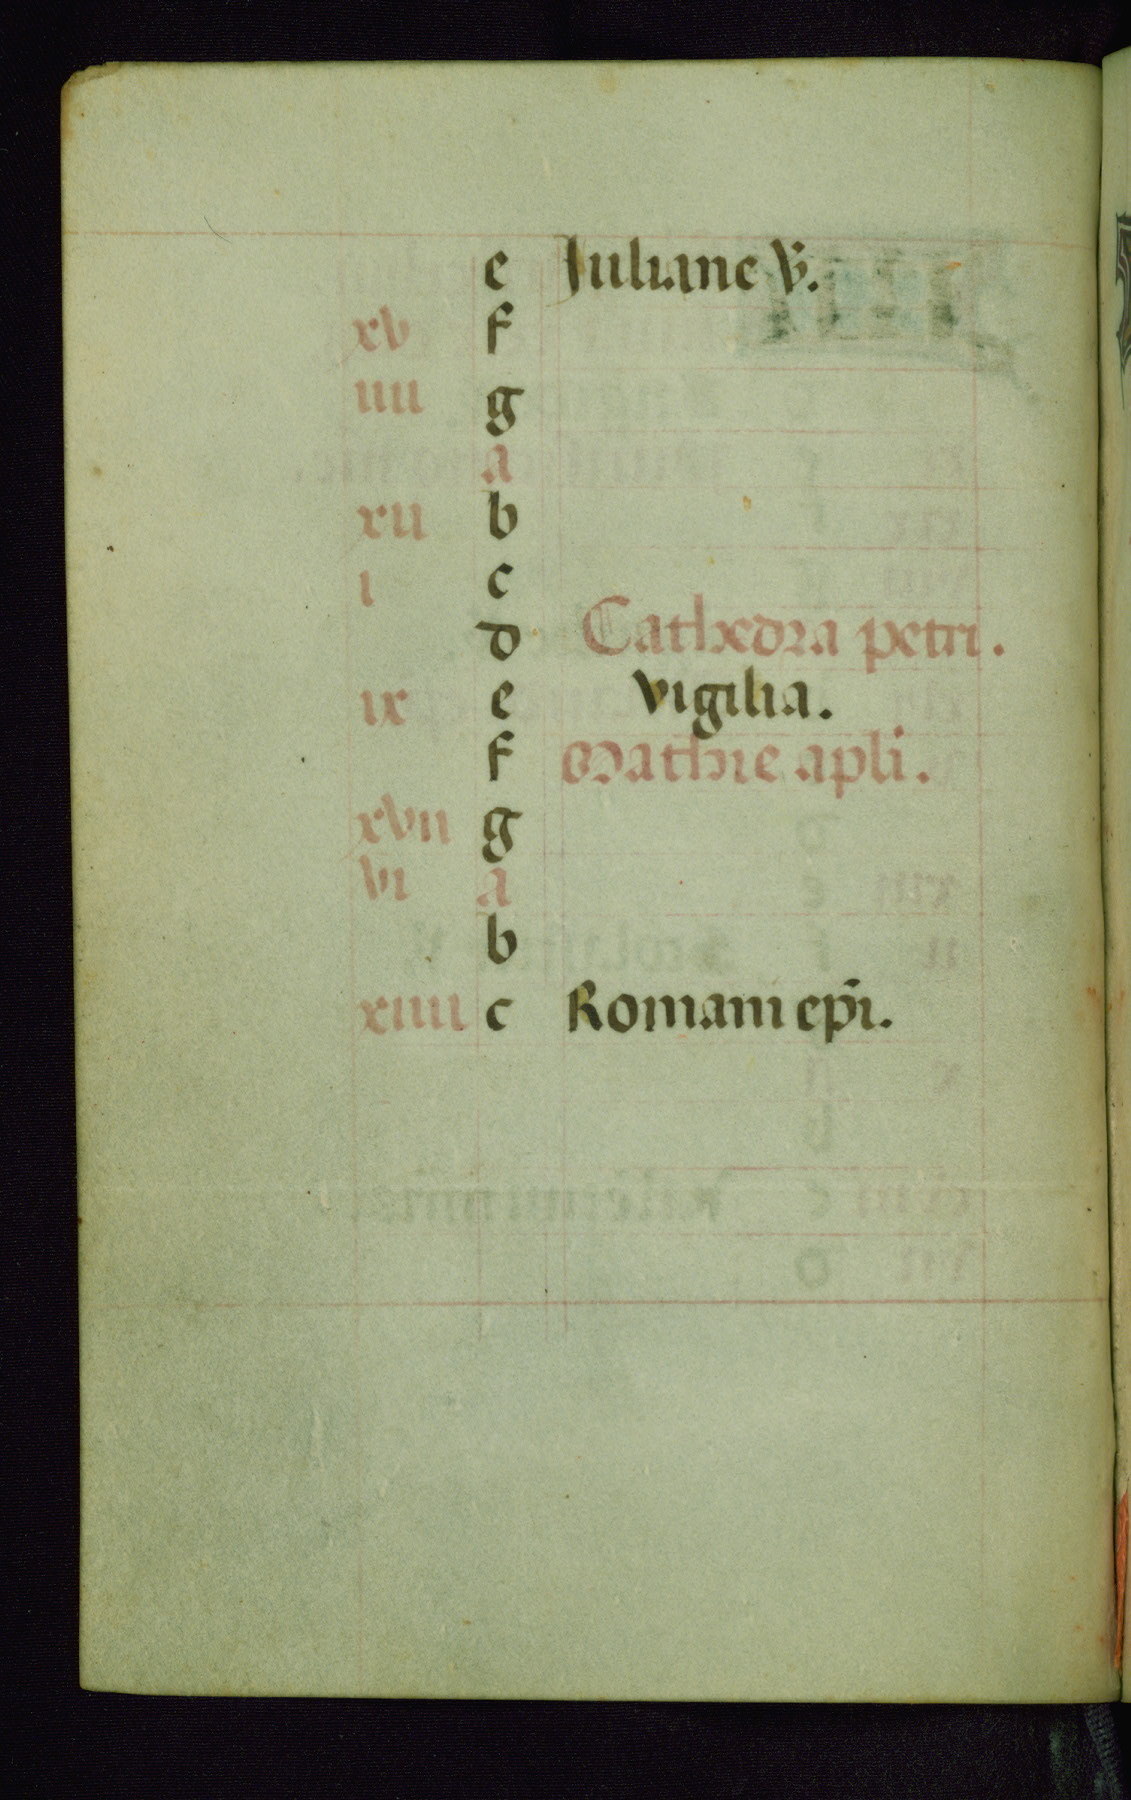 e Juliane v̄.
xv f
iiii g
a
xii b
i c
d Cathedra petri.
ix e vigilia.
f Mathie apli.
xvii g
vi a
b
xiiii c Romani ep̄i.